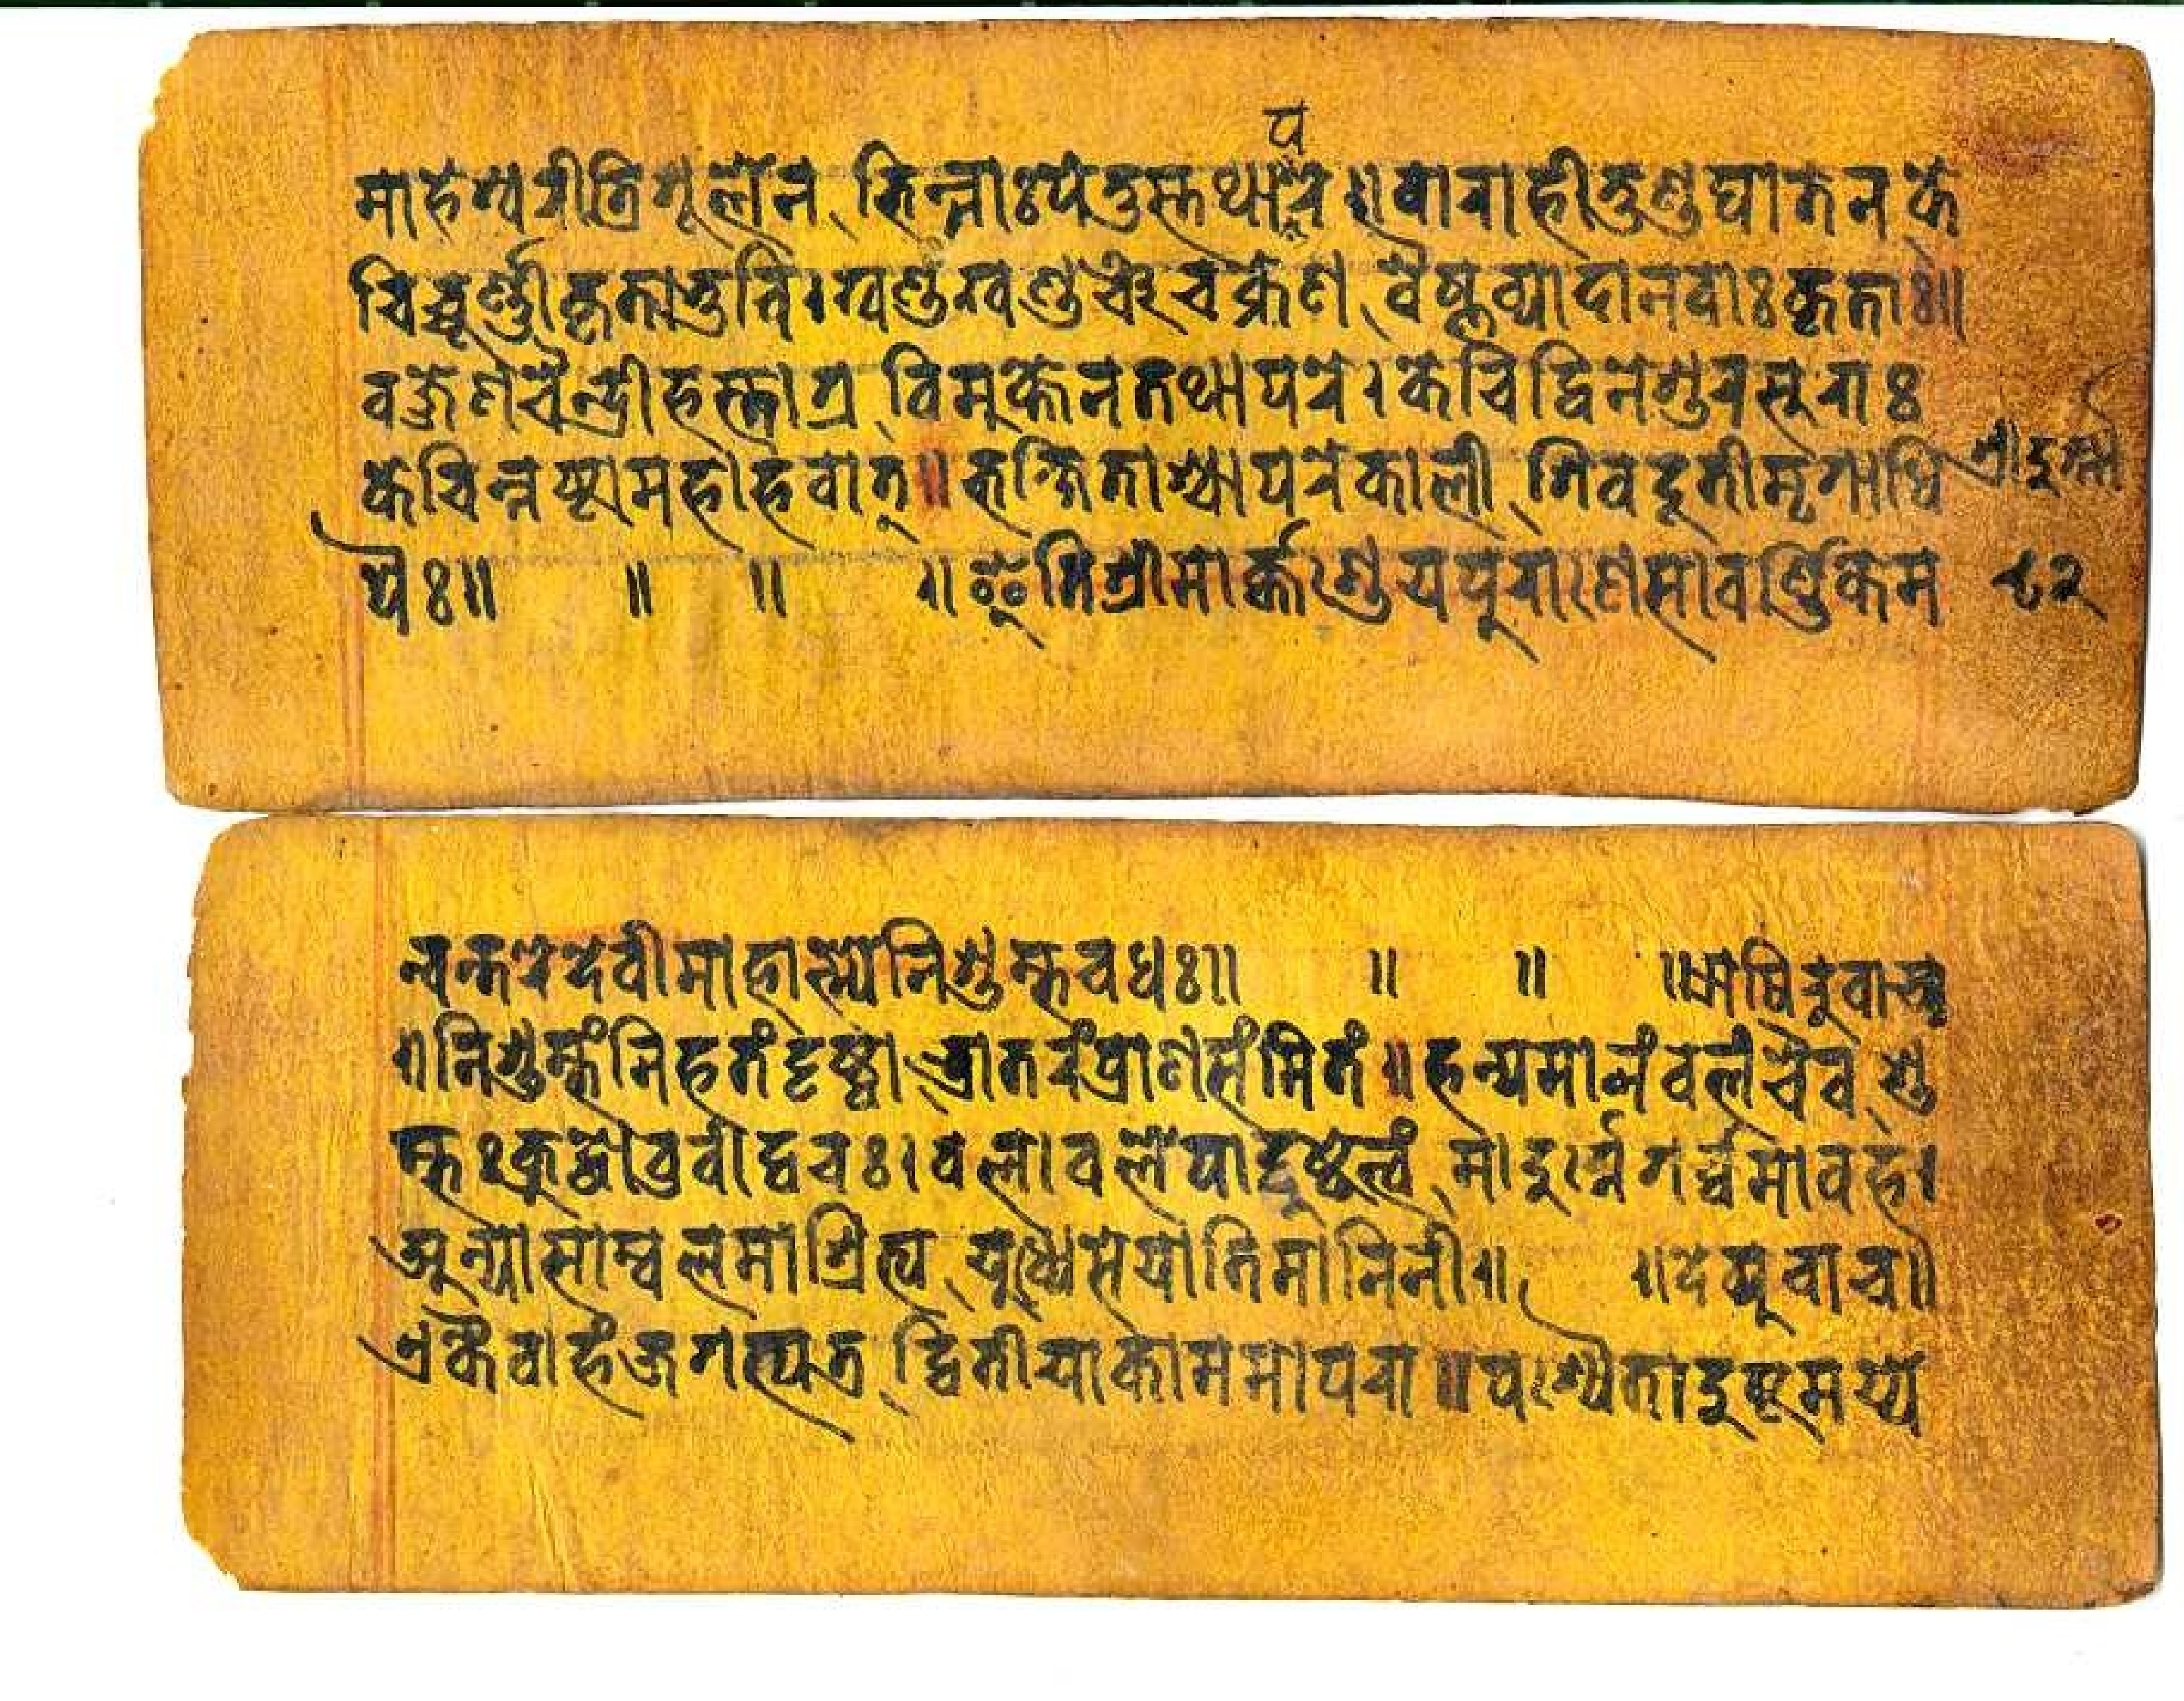 प
माहेश्वरीत्रिशूलेन भिन्नाःपेतुस्तथारे ॥वाराहीतुण्डघातेन के
चिच्चूर्ण्णीकृताभुवि।खण्डंखण्डञ्चचक्रेण वैष्णव्यादानवाःकृताः॥
वज्रेणचैन्द्रीहस्ताग्र विमुक्तेनतथापरे।केचिद्विनेशुरसुराः
केचिन्नष्टामहाहवात्॥भक्षिताश्चापरेकाली शिवदूतीमृगाधि
श्रीदुर्गा
पैः॥ ॥ ॥ ॥इतिश्रीमार्क्कण्डेयपुराणेसावर्ण्णिकेम
८२
न्वन्तरेदेवीमाहात्म्येनिशुम्भवधः॥ ॥ ॥ ॥ऋषिरुवाच
॥निशुम्भंनिहतंदृष्ट्वा भ्रातरंप्राणसंमितं॥हन्यमानंवलंचैव शु
म्भःक्रुद्धोवुवीद्वचः।वलावलेपाद्दुष्टेत्वं मादुर्ग्गेगर्व्वमावह।
अन्यासाम्वलमाश्रित्य युध्यसेयातिमानिनी॥ ॥देव्युवाच॥
एकैवाहंजगत्यत्र द्वितीयाकाममापरा॥पश्यैतादुष्टमय्ये